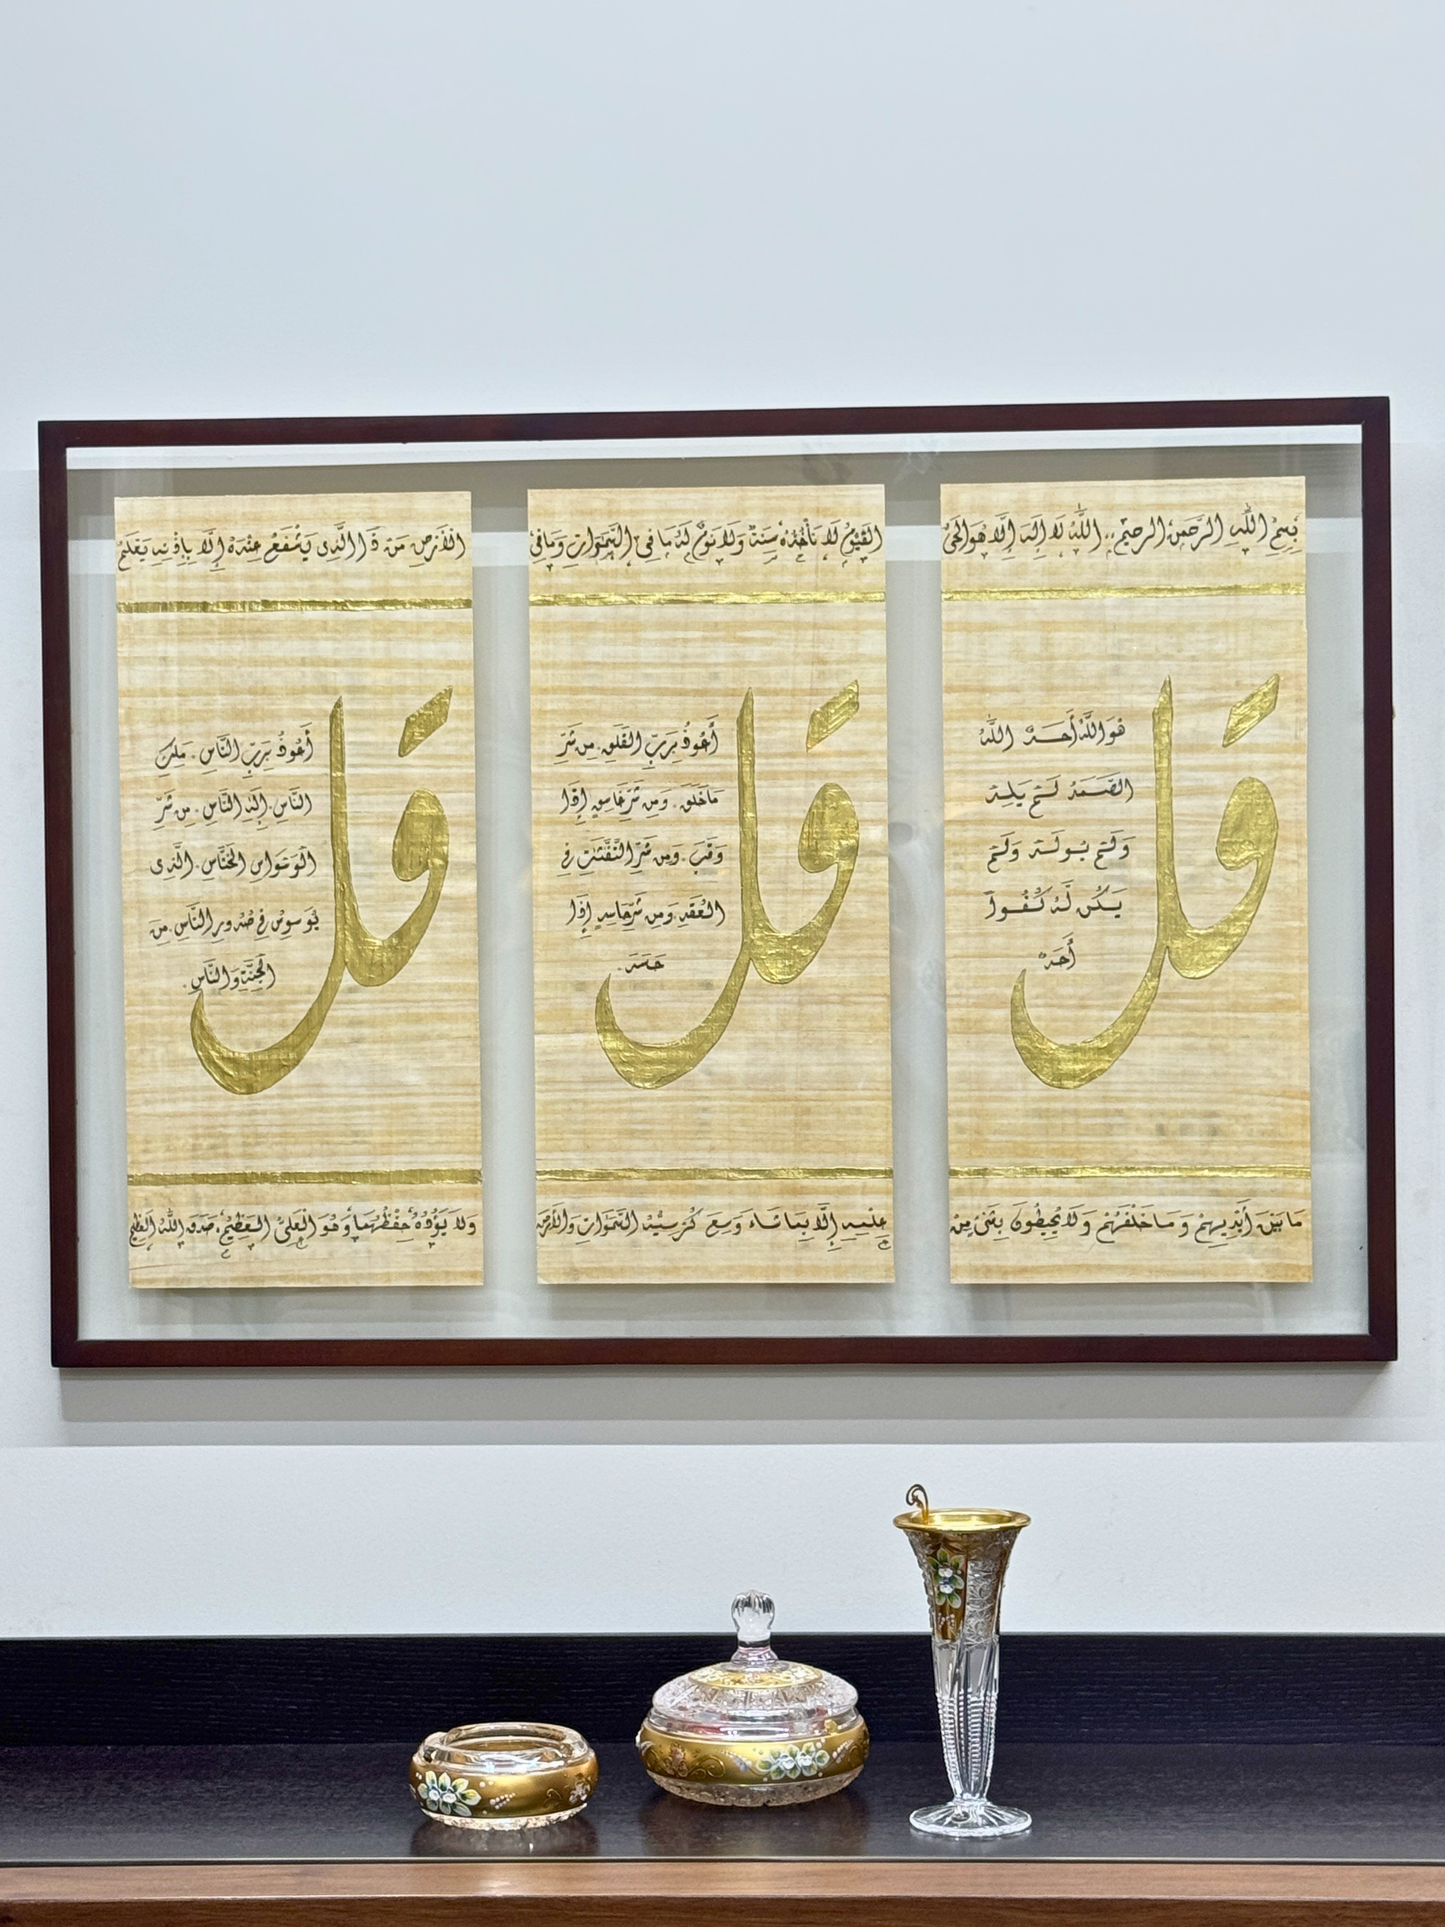 بِسْمِ اللَّهِ الرَّحْمَنِ الرَّحِيْمِ .. اللَّهُ لَا إِلَهَ إِلَّا هُوَ الْحَيُّ
قُل
هُوَ اللَّهُ أَحَدٌ اللَّهُ
الصَّمَدُ لَمْ يَلِدْ
وَلَمْ يُولَدْ وَلَمْ
يَكُن لَّهُ كُفُواً
أَحَدٌ
مَا بَيْنَ أَيْدِيهِمْ وَمَا خَلْفَهُمْ وَلَا يُحِيطُونَ بِشَيْءٍ مِنْ
الْقَيُّومُ لَا تَأْخُذُهُ سِنَةٌ وَلَا نَوْمٌ لَهُ مَا فِي السَّمَوَاتِ وَمَا فِي
قُل
أَعُوذُ بِرَبِّ الْفَلَقِ . مِن شَرِّ
مَا خَلَقَ . وَمِن شَرِّ غَاسِقٍ إِذَا
وَقَبَ . وَمِن شَرِّ النَّفَّثَتِ فِي
الْعُقَدِ . وَمِن شَرِّ حَاسِدٍ إِذَا
حَسَدَ .
عِلْمِهِ إِلَّا بِمَا شَاءَ وَسِعَ كُرْسِيُّهُ السَّمَوَاتِ وَالْأَرْضَ
الْأَرْضِ مَنْ ذَا الَّذِي يَشْفَعُ عِنْدَهُ إِلَّا بِإِذْنِهِ يَعْلَمُ
قُل
أَعُوذُ بِرَبِّ النَّاسِ . مَلِكِ
النَّاسِ . إِلَهِ النَّاسِ . مِن شَرِّ
الْوَسْوَاسِ الْخَنَّاسِ . الَّذِي
يُوَسْوِسُ فِي صُدُورِ النَّاسِ . مِنَ
الْجِنَّةِ وَالنَّاسِ .
وَلَا يَؤُدُهُ حِفْظُهُمَا وَهُوَ الْعَلِيُّ الْعَظِيْمُ . صَدَقَ اللَّهُ الْعَظِيمُ